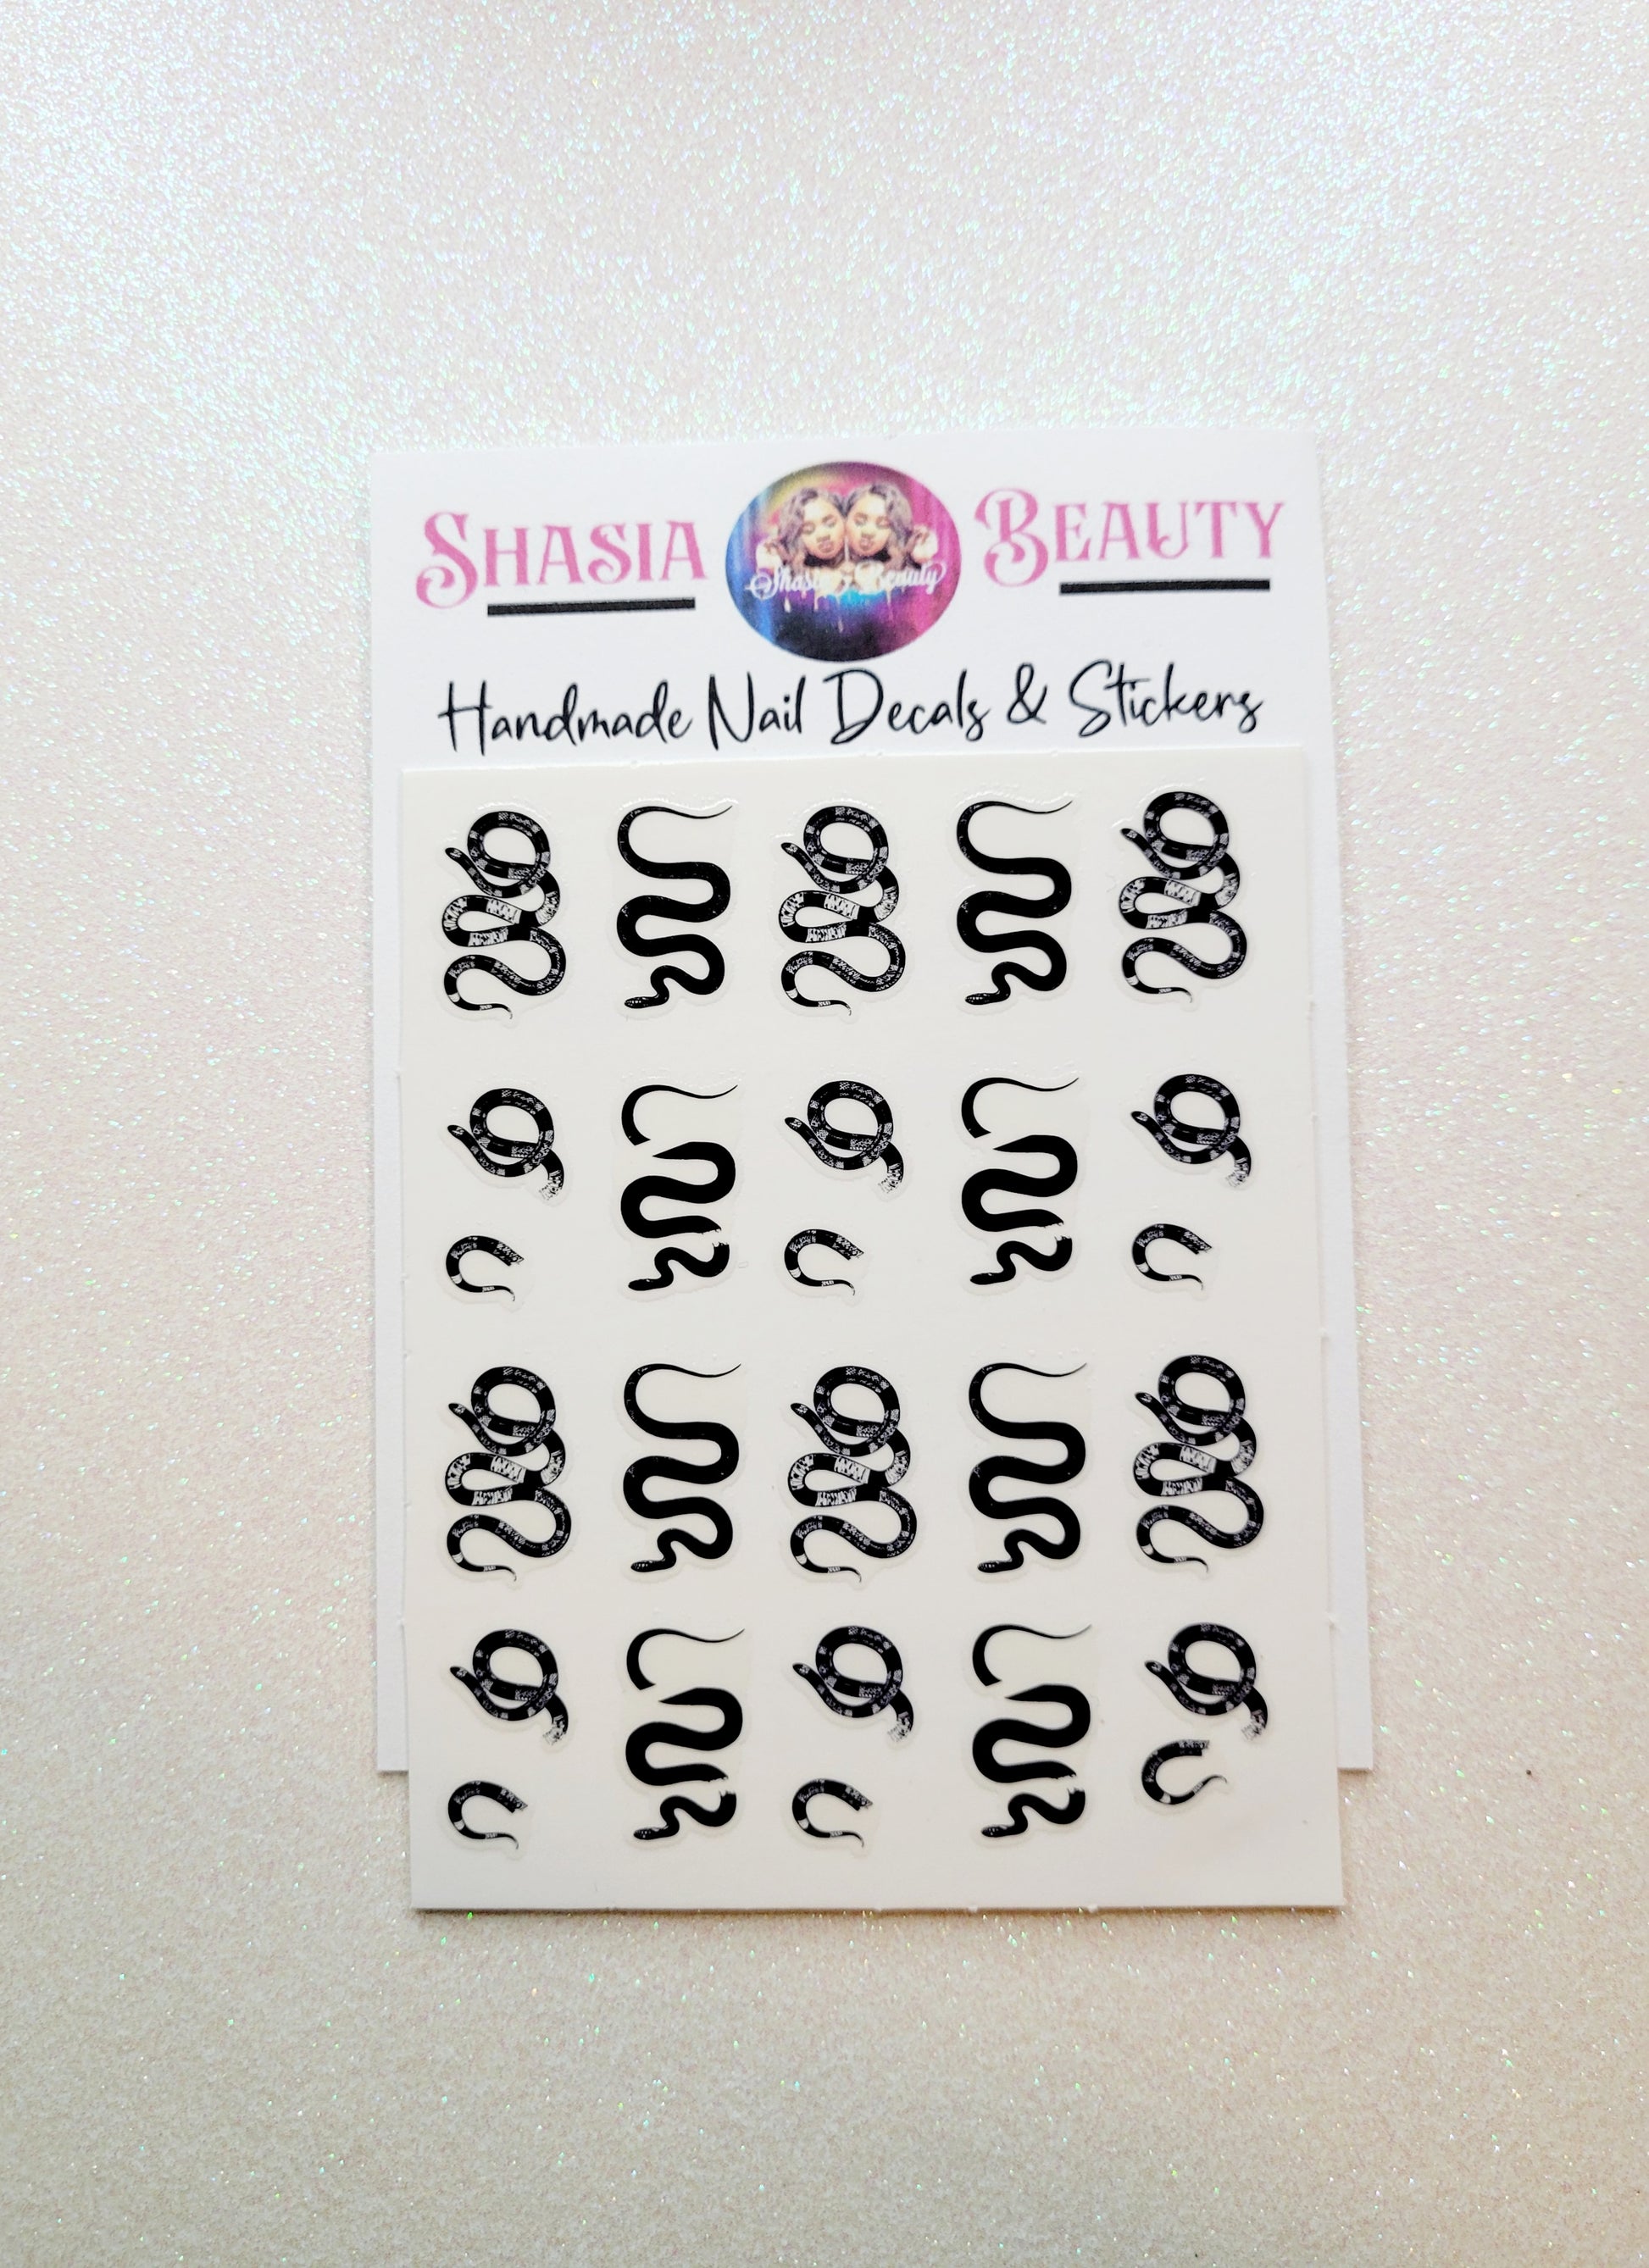 SHASIA BEAUTY
Shasia Beauty
Handmade Nail Decals & Stickers